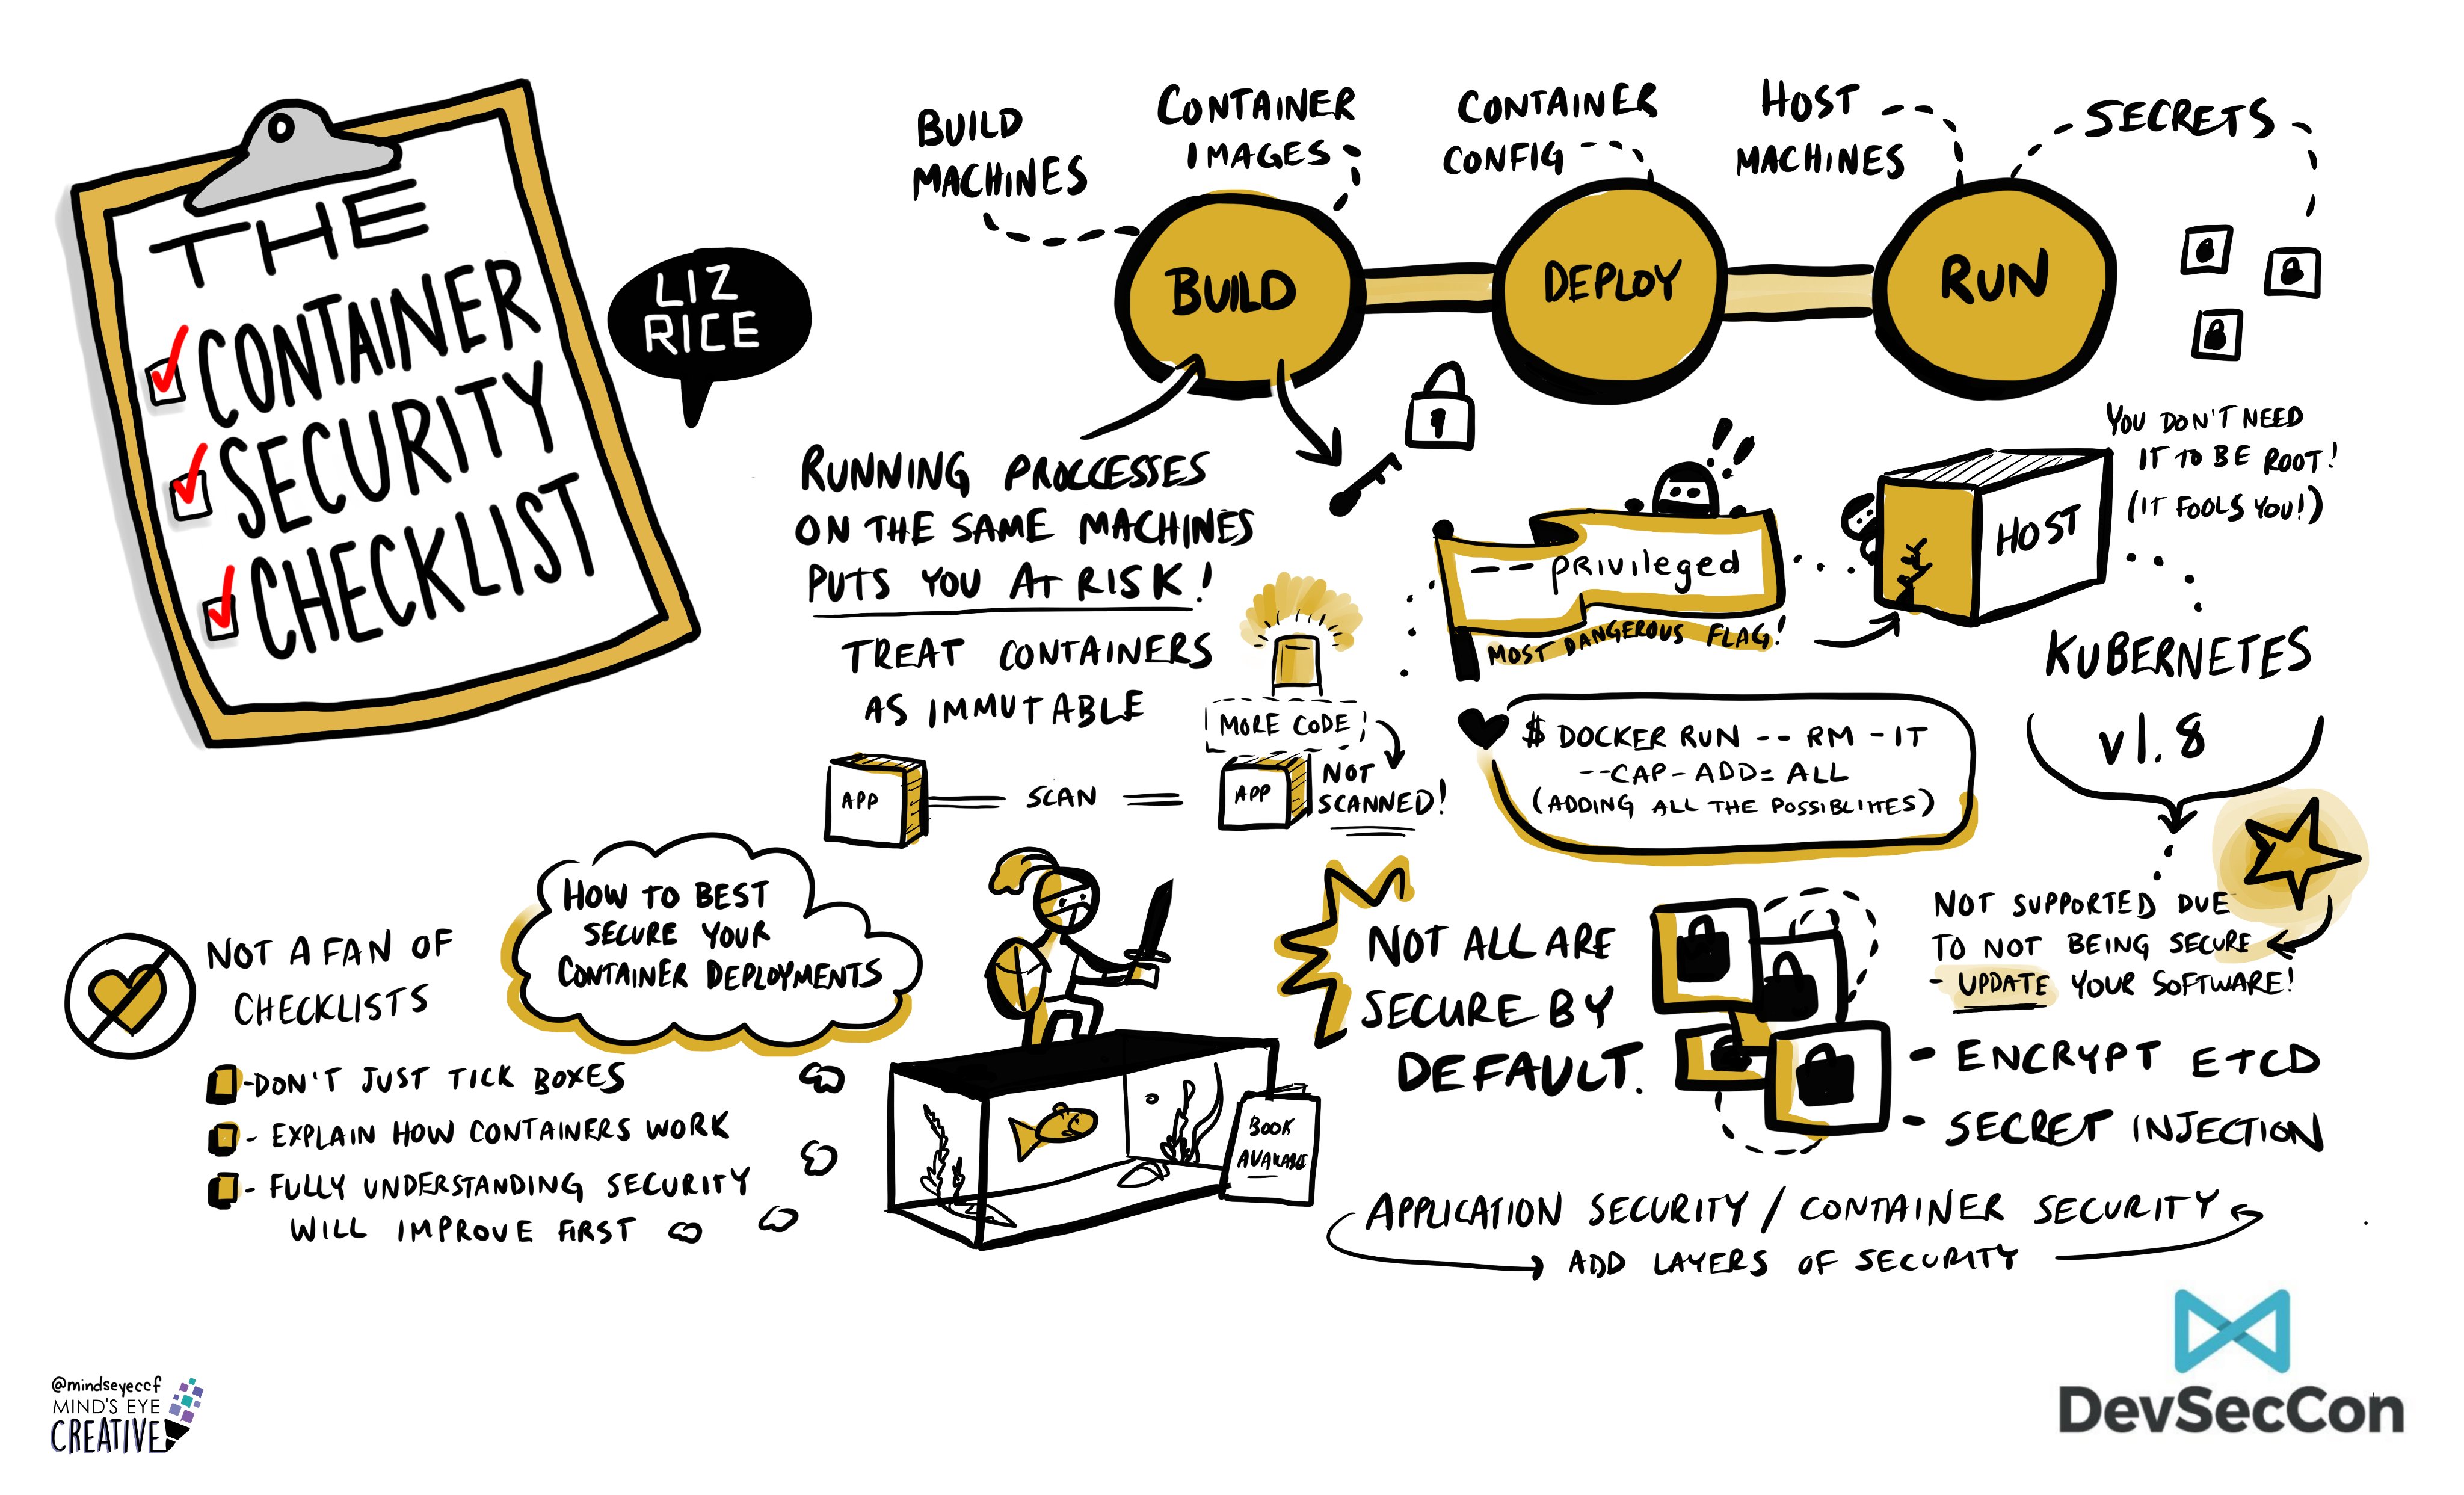 THE
CONTAINER
SECURITY
CHECKLIST
LIZ
RICE
BUILD
MACHINES
CONTAINER
IMAGES
CONTAINER
CONFIG
HOST
MACHINES
SECRETS
BUILD
DEPLOY
RUN
RUNNING PROCCESSES
ON THE SAME MACHINES
PUTS YOU AT RISK!
TREAT CONTAINERS
AS IMMUTABLE
APP
SCAN
MORE CODE
APP
NOT
SCANNED!
!!
-- privileged
MOST DANGEROUS FLAG!
HOST
YOU DON'T NEED
IT TO BE ROOT!
(IT FOOLS YOU!)
$ DOCKER RUN -- RM - IT
--CAP-ADD= ALL
(ADDING ALL THE POSSIBLIITES)
KUBERNETES
v1.8
NOT SUPPORTED DUE
TO NOT BEING SECURE
- UPDATE YOUR SOFTWARE!
NOT A FAN OF
CHECKLISTS
- DON'T JUST TICK BOXES
- EXPLAIN HOW CONTAINERS WORK
- FULLY UNDERSTANDING SECURITY
WILL IMPROVE FIRST
HOW TO BEST
SECURE YOUR
CONTAINER DEPLOYMENTS
BOOK
AVAILABLE
NOT ALL ARE
SECURE BY
DEFAULT.
- ENCRYPT ETCD
- SECRET INJECTION
APPLICATION SECURITY / CONTAINER SECURITY
ADD LAYERS OF SECURITY
@mindseyeccf
MIND'S EYE
CREATIVE
DevSecCon